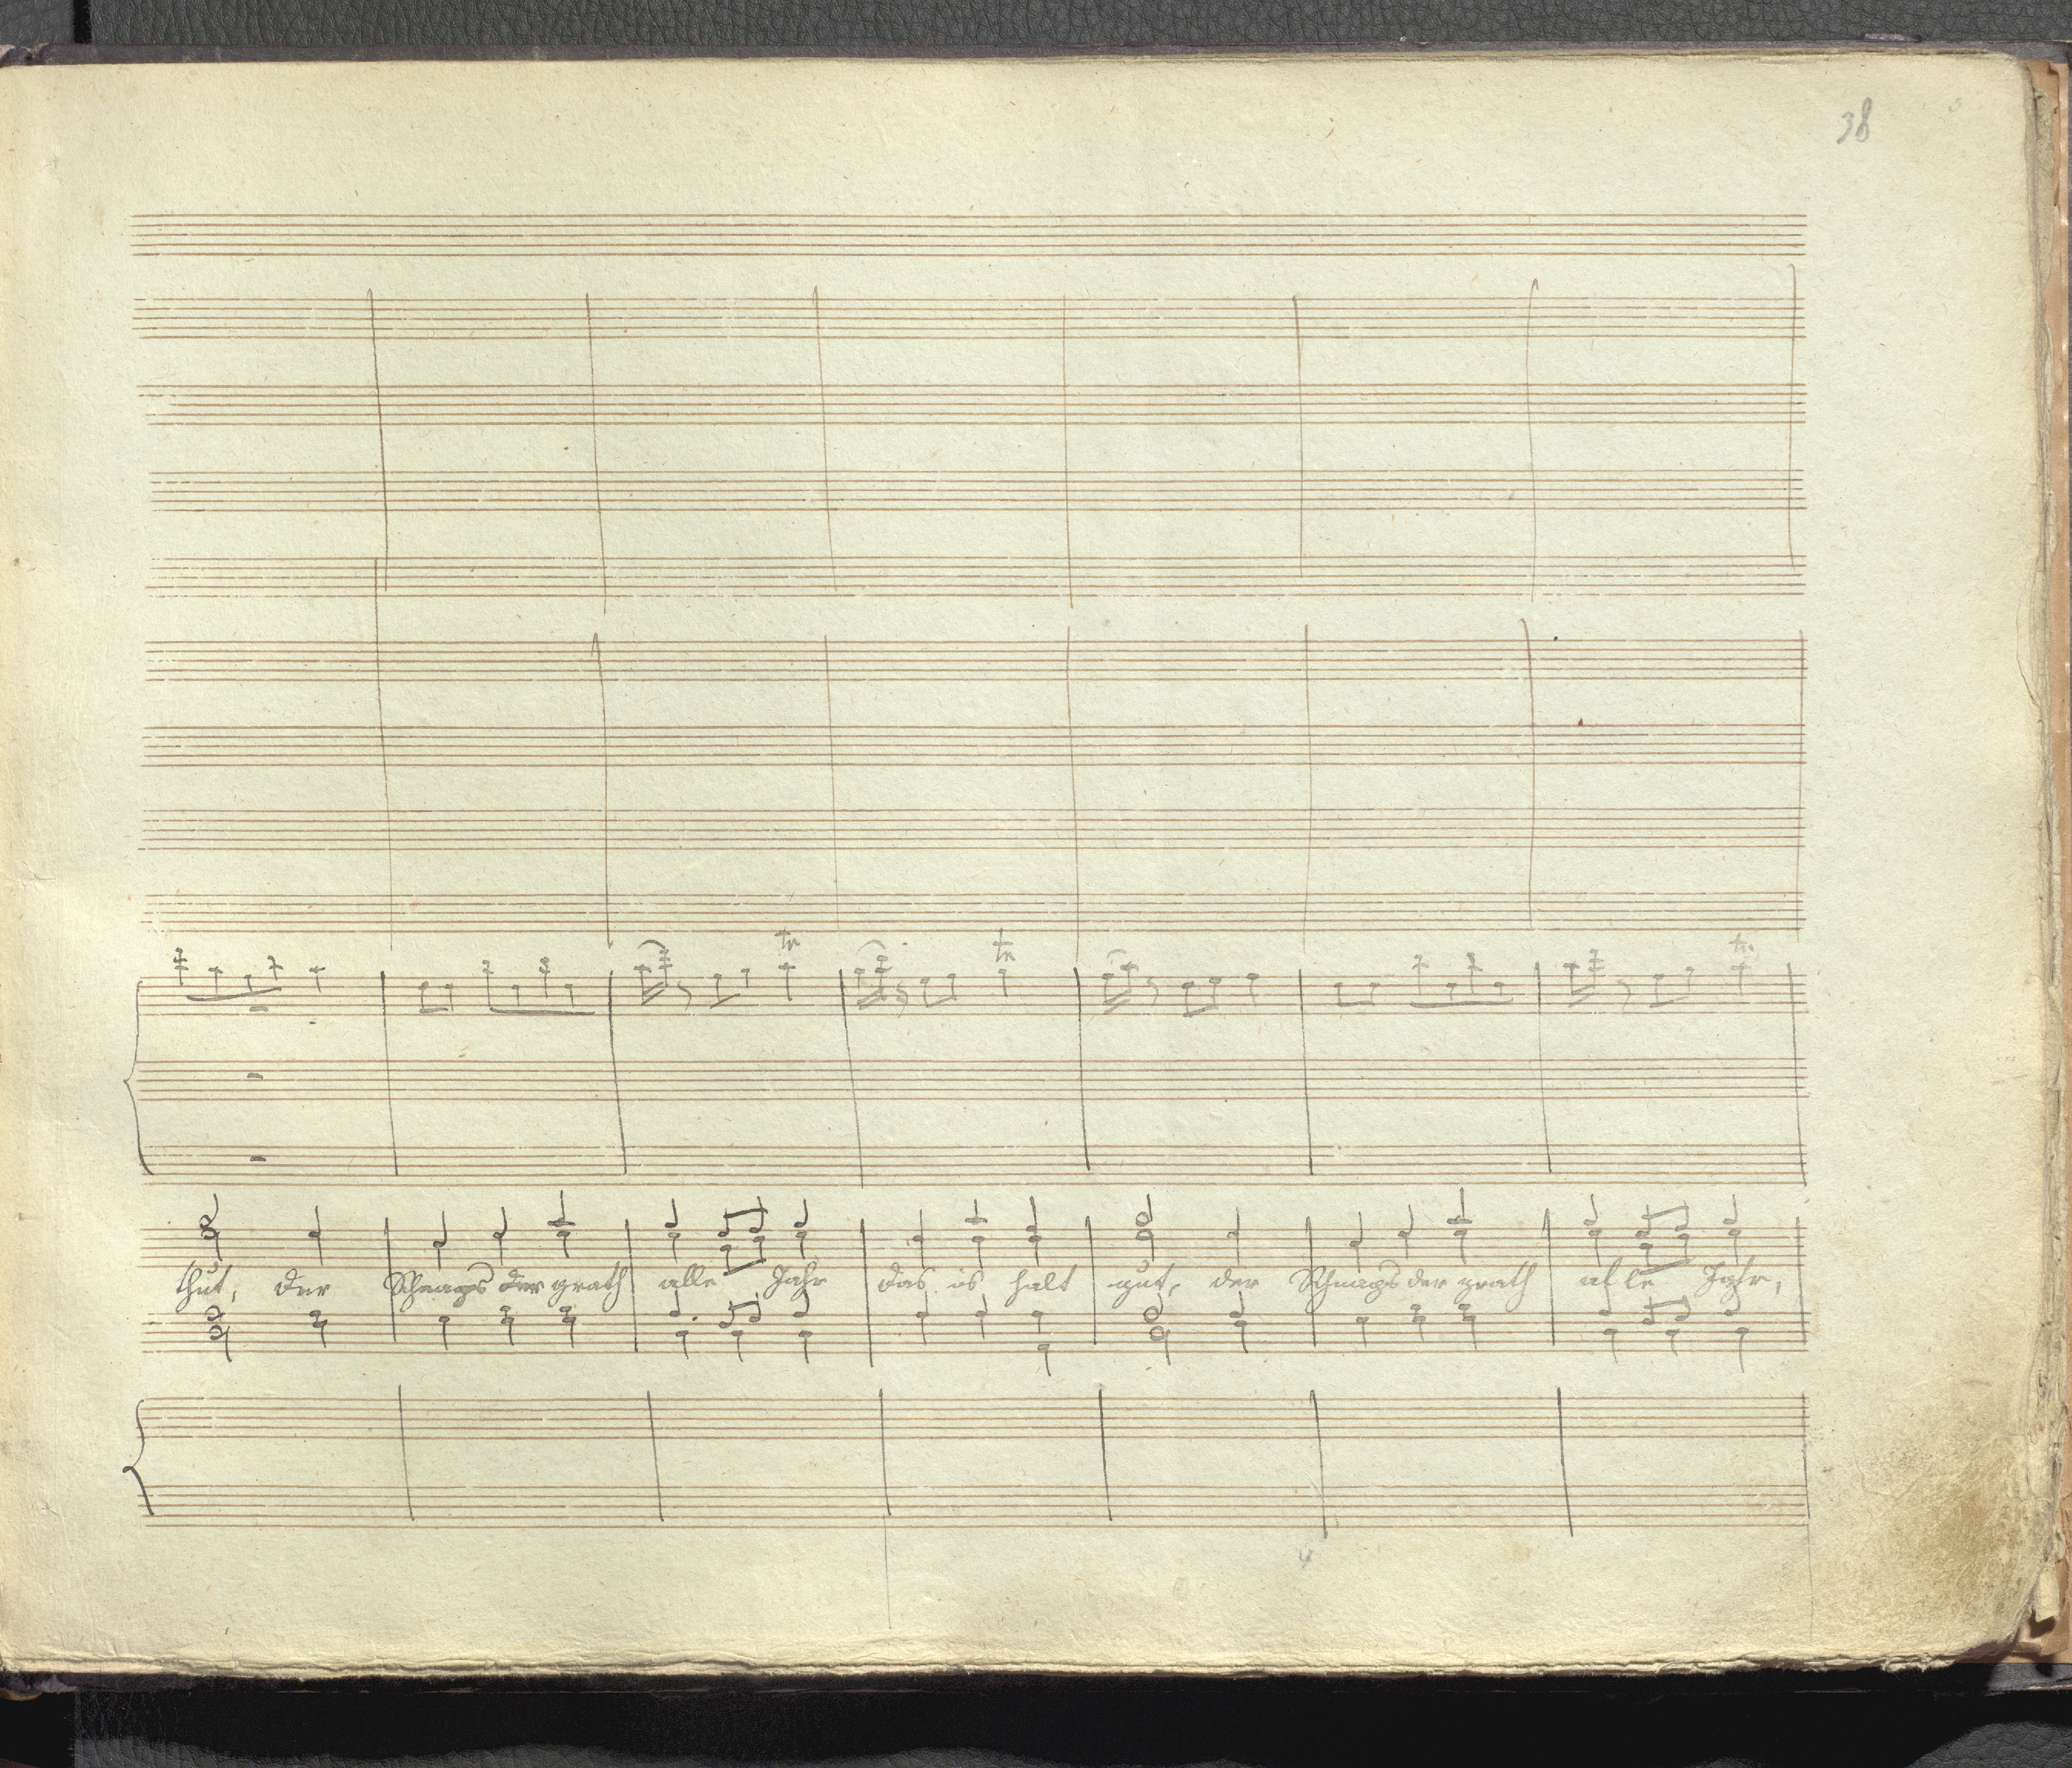 38
tr tr tr
thut, der Schnaps der grath alle Jahr das is halt gut, der Schnaps der grath alle Jahr,